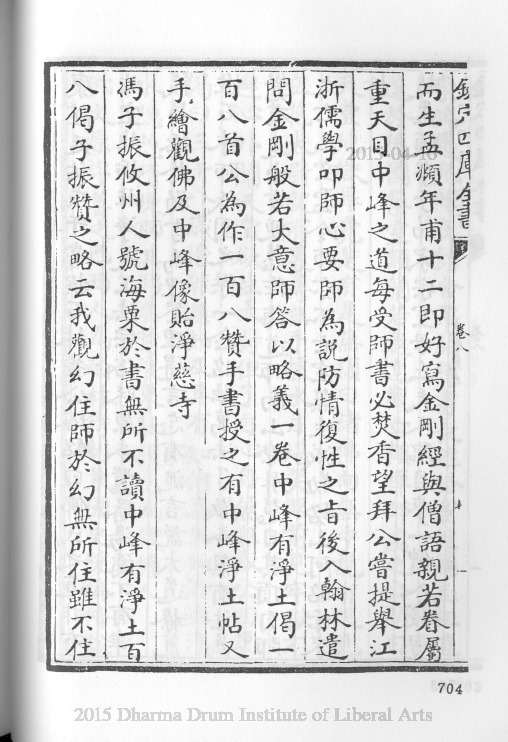 欽定四庫全書
卷八
而生孟頫年甫十二即好寫金剛經與僧語親若眷屬
重天目中峰之道每受師書必焚香望拜公嘗提舉江
浙儒學叩師心要師為說防情復性之旨後入翰林遣
問金剛般若大意師答以略義一卷中峰有淨土偈一
百八首公為作一百八贊手書授之有中峰淨土帖又
手繪觀佛及中峰像貽淨慈寺
馮子振攸州人號海粟於書無所不讀中峰有淨土百
八偈子振贊之略云我觀幻住師於幻無所住雖不住
704
2015-04-10
2015 Dharma Drum Institute of Liberal Arts